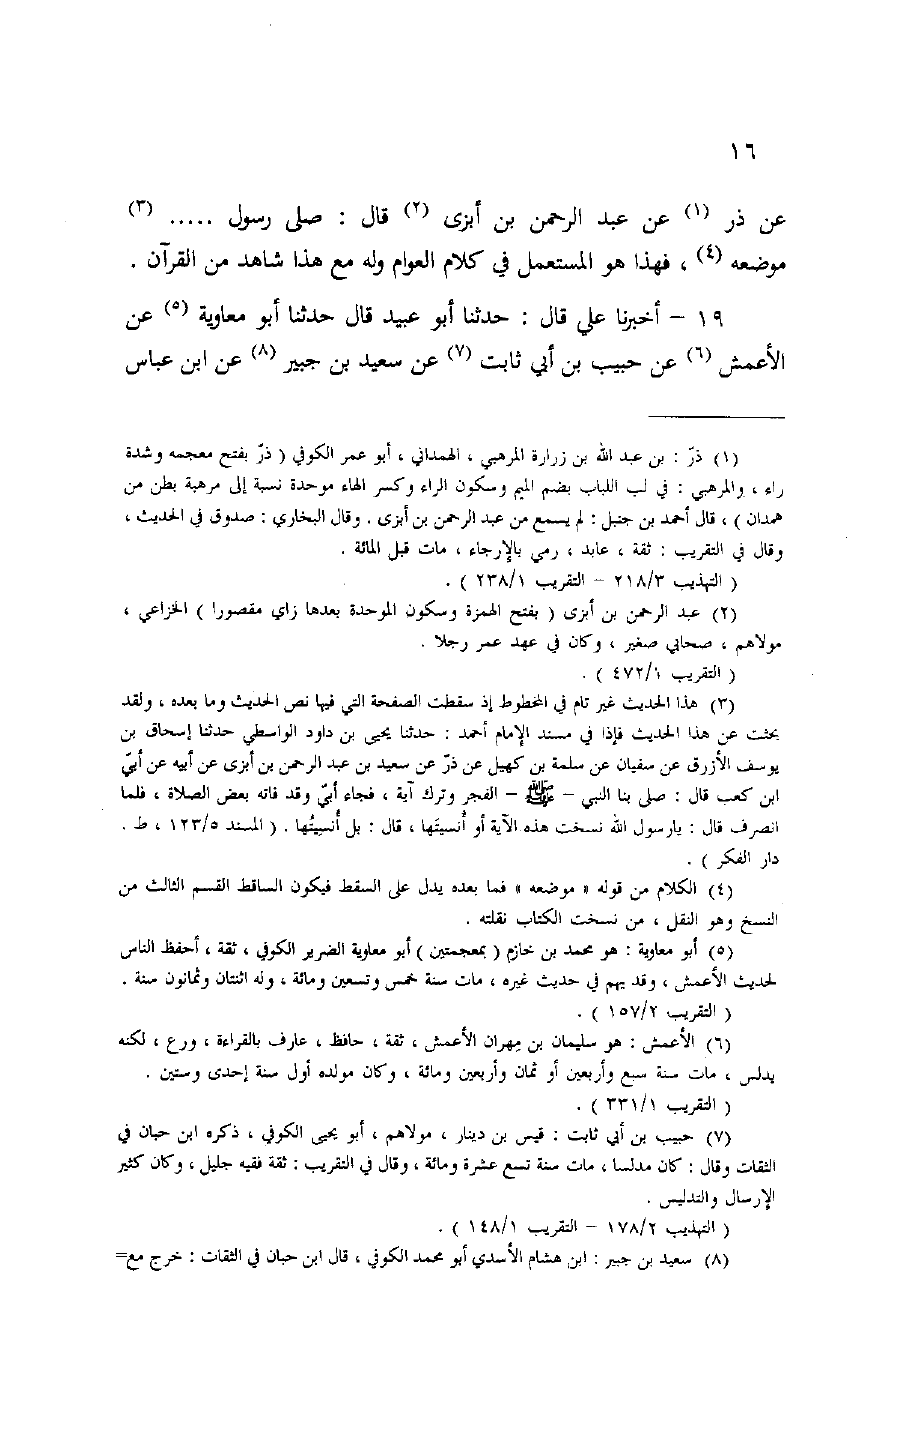 ١٦
عن ذر (١) عن عبد الرحمن بن أبزى (٢) قال : صلى رسول ..... (٣)
موضعه (٤) ، فهذا هو المستعمل في كلام العوام وله مع هذا شاهد من القرآن .
١٩ – أخبرنا علي قال : حدثنا أبو عبيد قال حدثنا أبو معاوية (٥) عن
الأعمش (٦) عن حبيب بن أبي ثابت (٧) عن سعيد بن جبير (٨) عن ابن عباس
(١) ذرّ : بن عبد الله بن زرارة المرهبي ، الهمداني ، أبو عمر الكوفي ( ذرّ بفتح معجمه وشدة
راء ، والمرهبي : في لب اللباب بضم الميم وسكون الراء وكسر الهاء موحدة نسبة إلى مرهبة بطن من
همدان ) ، قال أحمد بن حنبل : لم يسمع من عبد الرحمن بن أبزى . وقال البخاري : صدوق في الحديث ،
وقال في التقريب : ثقة ، عابد ، رمي بالإرجاء ، مات قبل المائة .
( التهذيب ٢١٨/٣ – التقريب ٢٣٨/١ ) .
(٢) عبد الرحمن بن أبزى ( بفتح الهمزة وسكون الموحدة بعدها زاي مقصورا ) الخزاعي ،
مولاهم ، صحابي صغير ، وكان في عهد عمر رجلا .
( التقريب ٤٧٢/١ ) .
(٣) هذا الحديث غير تام في المخطوط إذ سقطت الصفحة التي فيها نص الحديث وما بعده ، ولقد
بحثت عن هذا الحديث فإذا في مسند الإمام أحمد : حدثنا يحيى بن داود الواسطي حدثنا إسحاق بن
يوسف الأزرق عن سفيان عن سلمة بن كهيل عن ذرّ عن سعيد بن عبد الرحمن بن أبزى عن أبيه عن أبيّ
ابن كعب قال : صلى بنا النبي – ﷺ – الفجر وترك آية ، فجاء أبيّ وقد فاته بعض الصلاة ، فلما
انصرف قال : يارسول الله نسخت هذه الآية أو أُنسيتَها ، قال : بل أُنسيتُها . ( المسند ١٢٣/٥ ، ط .
دار الفكر ) .
(٤) الكلام من قوله « موضعه » فما بعده يدل على السقط فيكون الساقط القسم الثالث من
النسخ وهو النقل ، من نسخت الكتاب نقلته .
(٥) أبو معاوية : هو محمد بن خازم ( بمعجمتين ) أبو معاوية الضرير الكوفي ، ثقة ، أحفظ الناس
لحديث الأعمش ، وقد يهم في حديث غيره ، مات سنة خمس وتسعين ومائة ، وله اثنتان وثمانون سنة .
( التقريب ١٥٧/٢ ) .
(٦) الأعمش : هو سليمان بن مِهران الأعمش ، ثقة ، حافظ ، عارف بالقراءة ، ورع ، لكنه
يدلس ، مات سنة سبع وأربعين أو ثمان وأربعين ومائة ، وكان مولده أول سنة إحدى وستين .
( التقريب ٣٣١/١ ) .
(٧) حبيب بن أبي ثابت : قيس بن دينار ، مولاهم ، أبو يحيى الكوفي ، ذكره ابن حبان في
الثقات وقال : كان مدلسا ، مات سنة تسع عشرة ومائة ، وقال في التقريب : ثقة فقيه جليل ، وكان كثير
الإرسال والتدليس .
( التهذيب ١٧٨/٢ – التقريب ١٤٨/١ ) .
(٨) سعيد بن جبير : ابن هشام الأسدي أبو محمد الكوفي ، قال ابن حبان في الثقات : خرج مع=